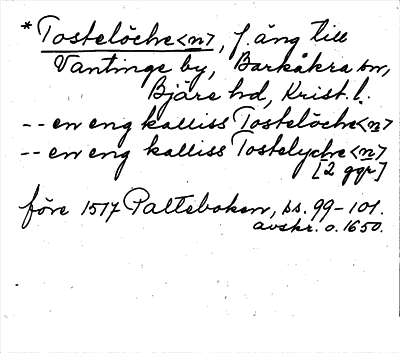 * Tostelöche<n>, f. äng till
Vantinge by, Barkåkra sn,
Bjäre hd, Krist. l.
-- en eng kalliss Tostelöche<n>
-- en eng kalliss Tostelyche<n>
[2 ggr]
före 1517 Palteboken, ss. 99-101.
avskr. o. 1650.